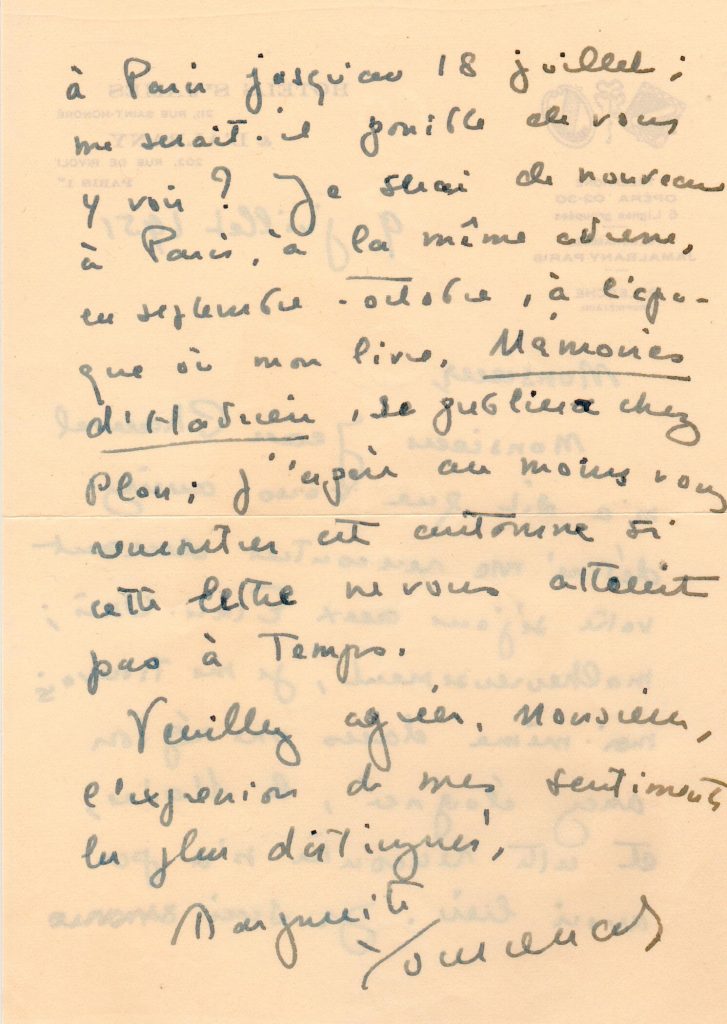 à Paris jusqu'au 18 juillet ;
me serait-il possible de vous
y voir ? Je serai de nouveau
à Paris, à la même adresse,
en septembre-octobre, à l'épo-
que où mon livre, Mémoires
d'Hadrien, se publiera chez
Plon ; j'espère au moins vous
rencontrer cet automne si
cette lettre ne vous atteint
pas à temps.
Veuillez agréer, Monsieur,
l'expression de mes sentiments
les plus distingués,
Marguerite
Yourcenar